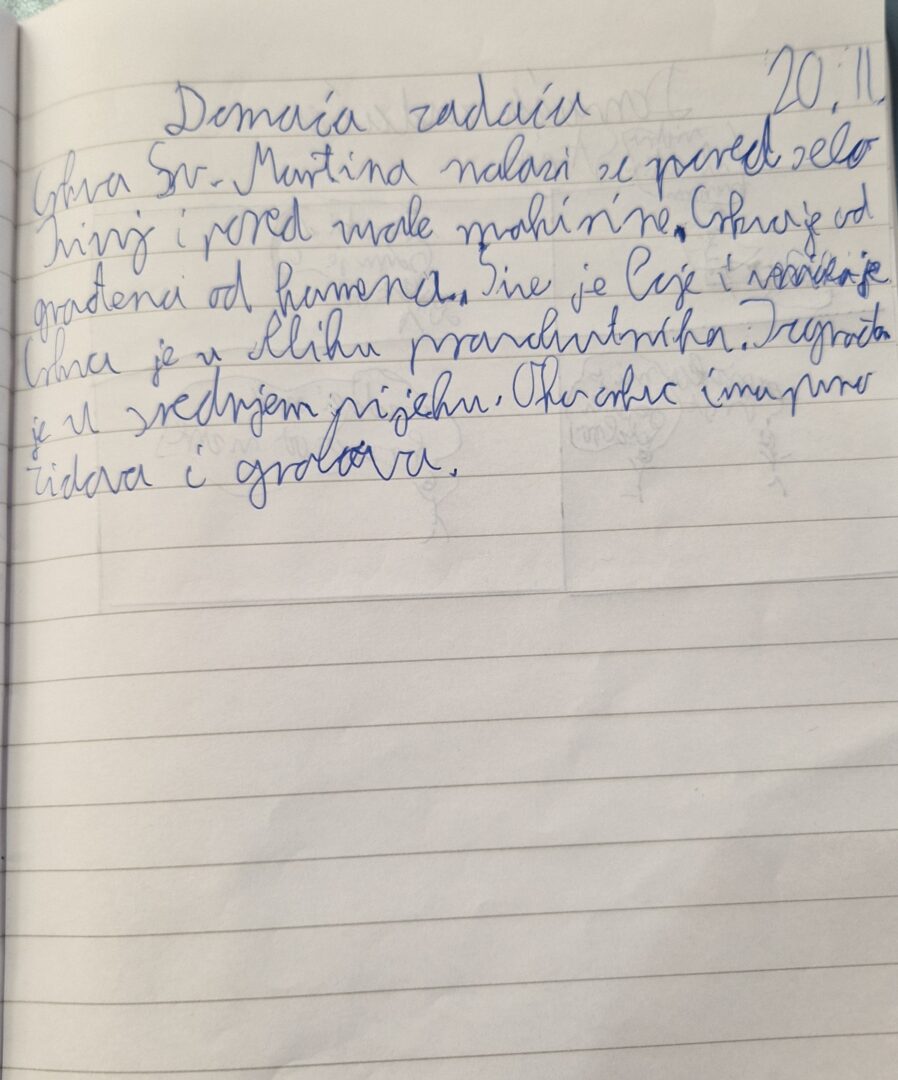 Domaća zadaća 20.11.
Crkva Sv. Martina nalazi se pored selo
i pored male Crkva je od
građena od kamena. je i
Crkva je u obliku pravokutnika. Izgrađena
je u srednjem vijeku. Oko crkve ima puno
zidova i grobova.